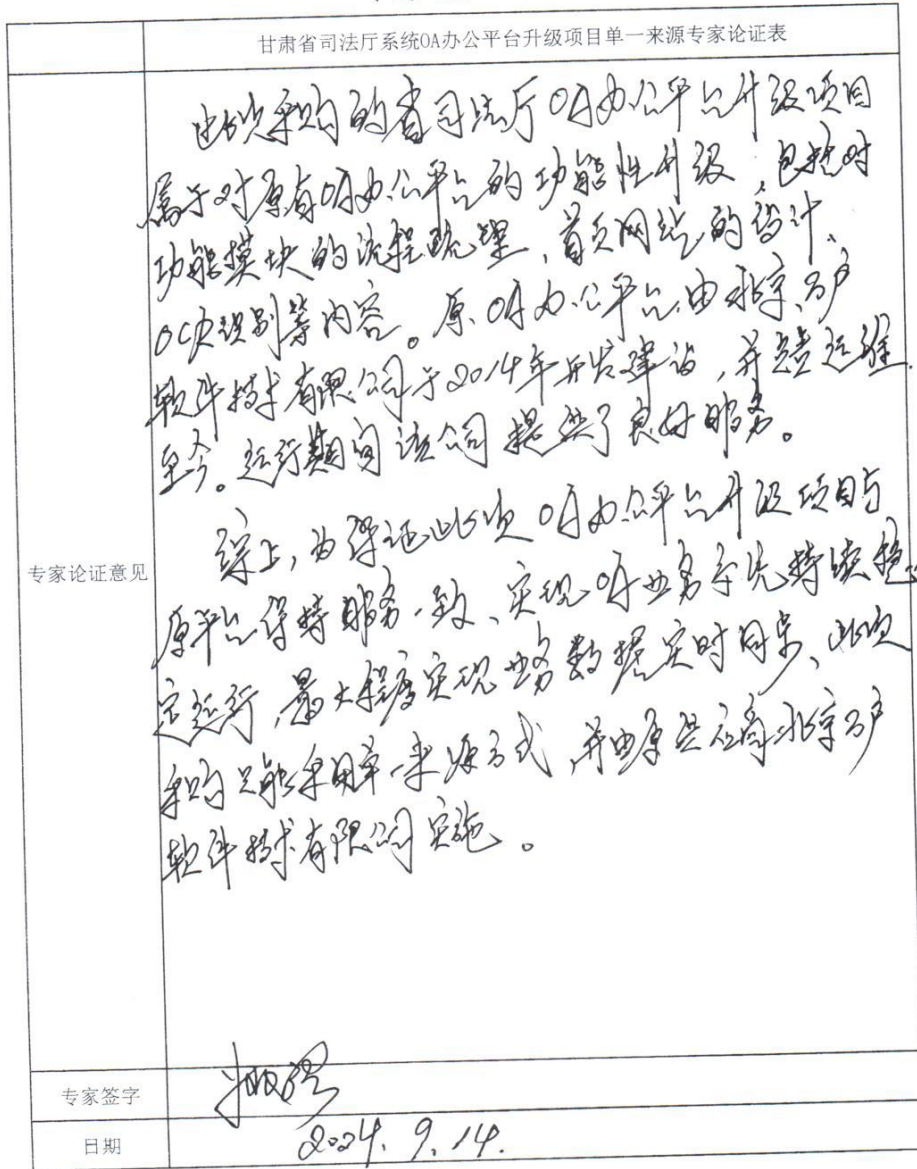 甘肃省司法厅系统OA办公平台升级项目单一来源专家论证表
专家论证意见
此次采购的省司法厅OA办公平台升级项目
属于对原有OA办公平台的功能性升级,包括对
功能模块的流程梳理,首页网站的设计、
OCR识别等内容。原OA办公平台由北京
软件技术有限公司于2014年开发建设,并运维
至今。运行期间该公司提供了良好服务。
综上,为保证此次OA办公平台升级项目与
原平台保持服务一致、实现OA业务系统持续稳
定运行,最大程度实现业务数据实时同步、此次
采购只能采用单一来源方式,并由原供应商北京
软件技术有限公司实施。
专家签字
日期
2024.9.14.